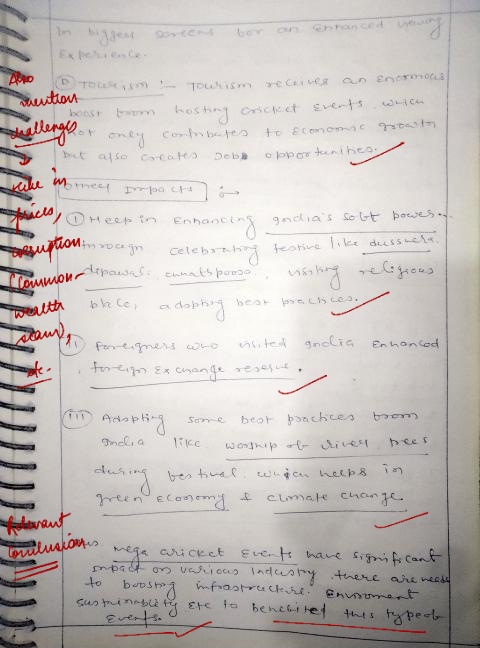 In biggest screens for an enhanced viewing
Experience.
(b) Tourism :- Tourism receives an enormous
boost from hosting cricket Events which
not only contributes to Economic growth
but also creates Job opportunities.
Other Impacts :→
(i) Help in Enhancing India's soft power
through celebrating festive like dussehra
depawali, chhatpooja, visiting religious
place, adopting best practices.
(ii) Foreigners who visited India Enhanced
foreign Exchange reserve.
(iii) Adopting some best practices from
India like worship of river, trees
during festival which helps in
green economy & climate change.
mega cricket Events have significant
impact on various Industry there are needs
to boosting infrastructure. Environment
sustainablity etc to benefited this type of
Events.
Also
mention
challenges
↓
rise in
prices,
corruption
(Common-
wealth
scam),
etc.
Relevant
Conclusion